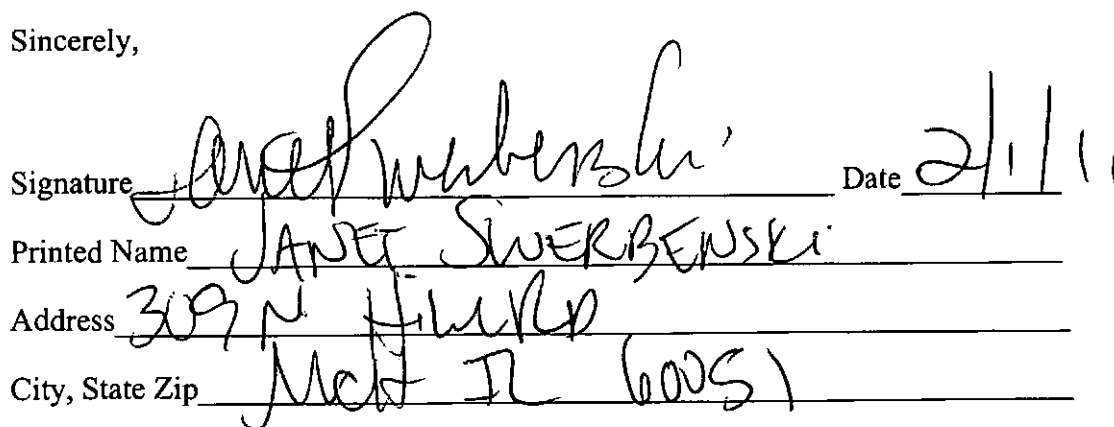 Sincerely,
Signature Janet Swerbenski Date 2/1/11
Printed Name JANET SWERBENSKI
Address 309 N Hill RD
City, State Zip McH IL 60051